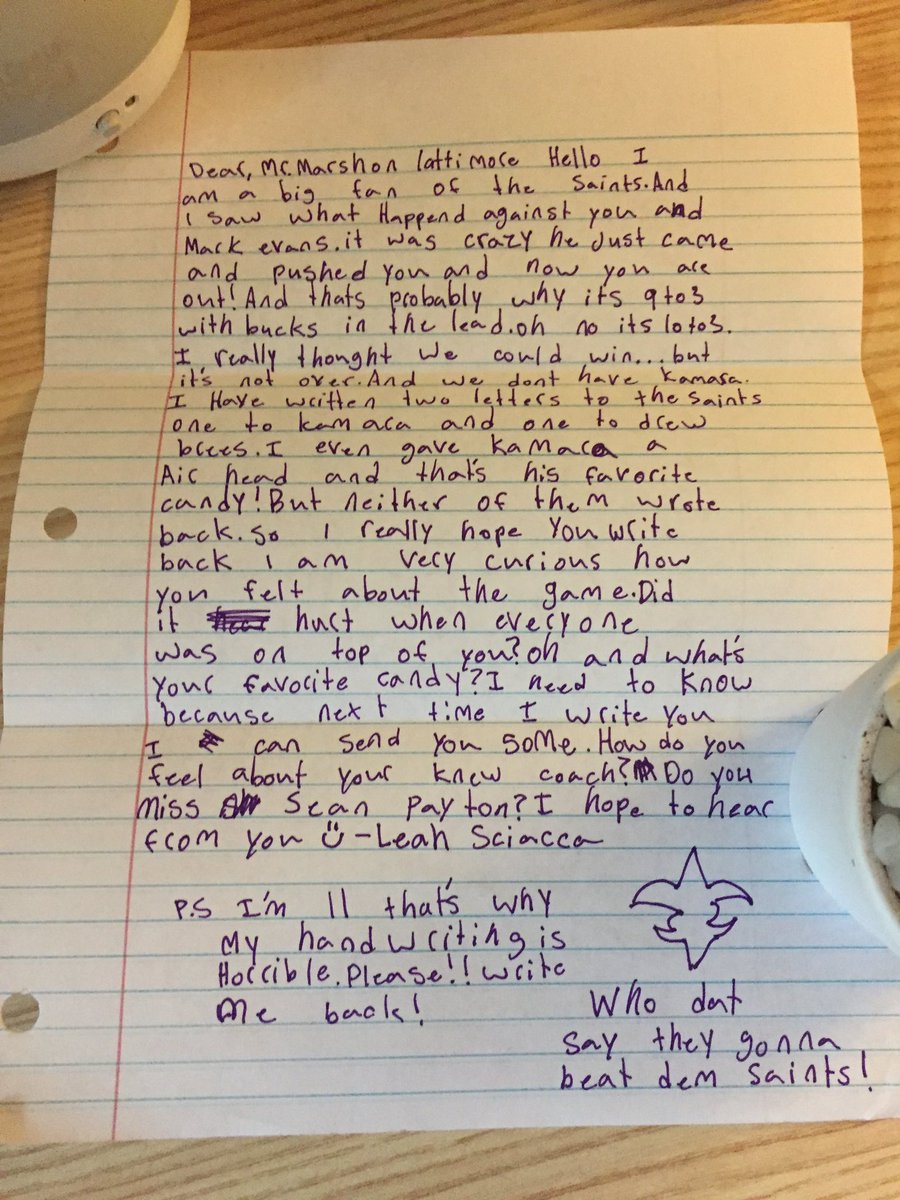 Dear, Mr. Marshon lattimore Hello I
am a big fan of the Saints. And
I saw what Happend against you and
Mack evans. it was crazy he Just came
and pushed you and now you are
out! And thats probably why its 9 to 3
with bucks in the lead. oh no its 10 to 3.
I really thought we could win... but
it's not over. And we dont have Kamara.
I Have written two letters to the Saints
one to kamara and one to drew
brees. I even gave Kamara a
Air head and that's his favorite
candy! But neither of them wrote
back. so I really hope You write
back I am very curious how
you felt about the game. Did
it hurt when everyone
was on top of you? oh and what's
your favorite candy? I need to know
because next time I write You
I can send you some. How do you
feel about your knew coach? Do you
miss Sean Payton? I hope to hear
from you -Leah Sciacca
P.S I'm 11 that's why
my handwriting is
Horrible. Please!! write
Me back!
Who dat
say they gonna
beat dem Saints!